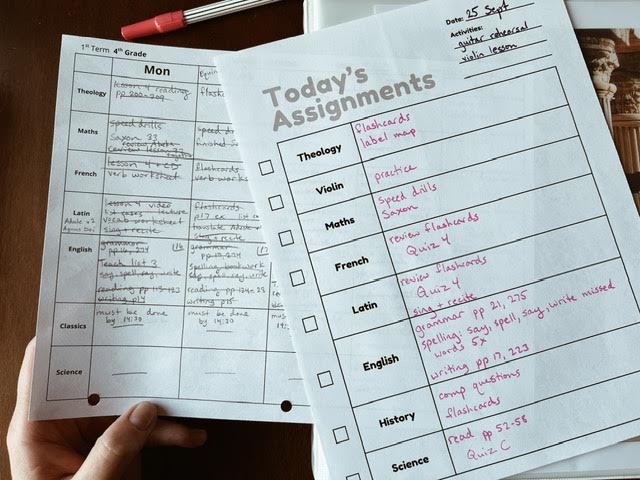 1st Term 4th Grade
Mon
Theology
lesson 4 reading
pp 200-209
flash
Maths
speed drills
Saxon 33
speed d
finished
French
lesson 4 + CD
verb worksheet
flashcards
verb works
Latin
lesson 4 video
list cases lecture
vocab worksheet
sing + recite
flashcards
p17 ex list c
translate
sing + recite
English
grammar
Teach list 3
say, spell, say, write
writing p14
grammar
writing p15
Classics
must be done
by 14:30
must be done
by 14:30
must
by
Science
Date: 25 Sept
Activities:
guitar rehearsal
violin lesson
Today's
Assignments
Theology
flashcards
label map
Violin
practice
Maths
speed drills
Saxon
French
review flashcards
Quiz 4
Latin
review flashcards
Quiz 4
sing + recite
English
grammar pp 21, 275
spelling: say, spell, say, write missed
words 5x
writing pp 17, 223
History
comp questions
flashcards
Science
read pp 52-58
Quiz C